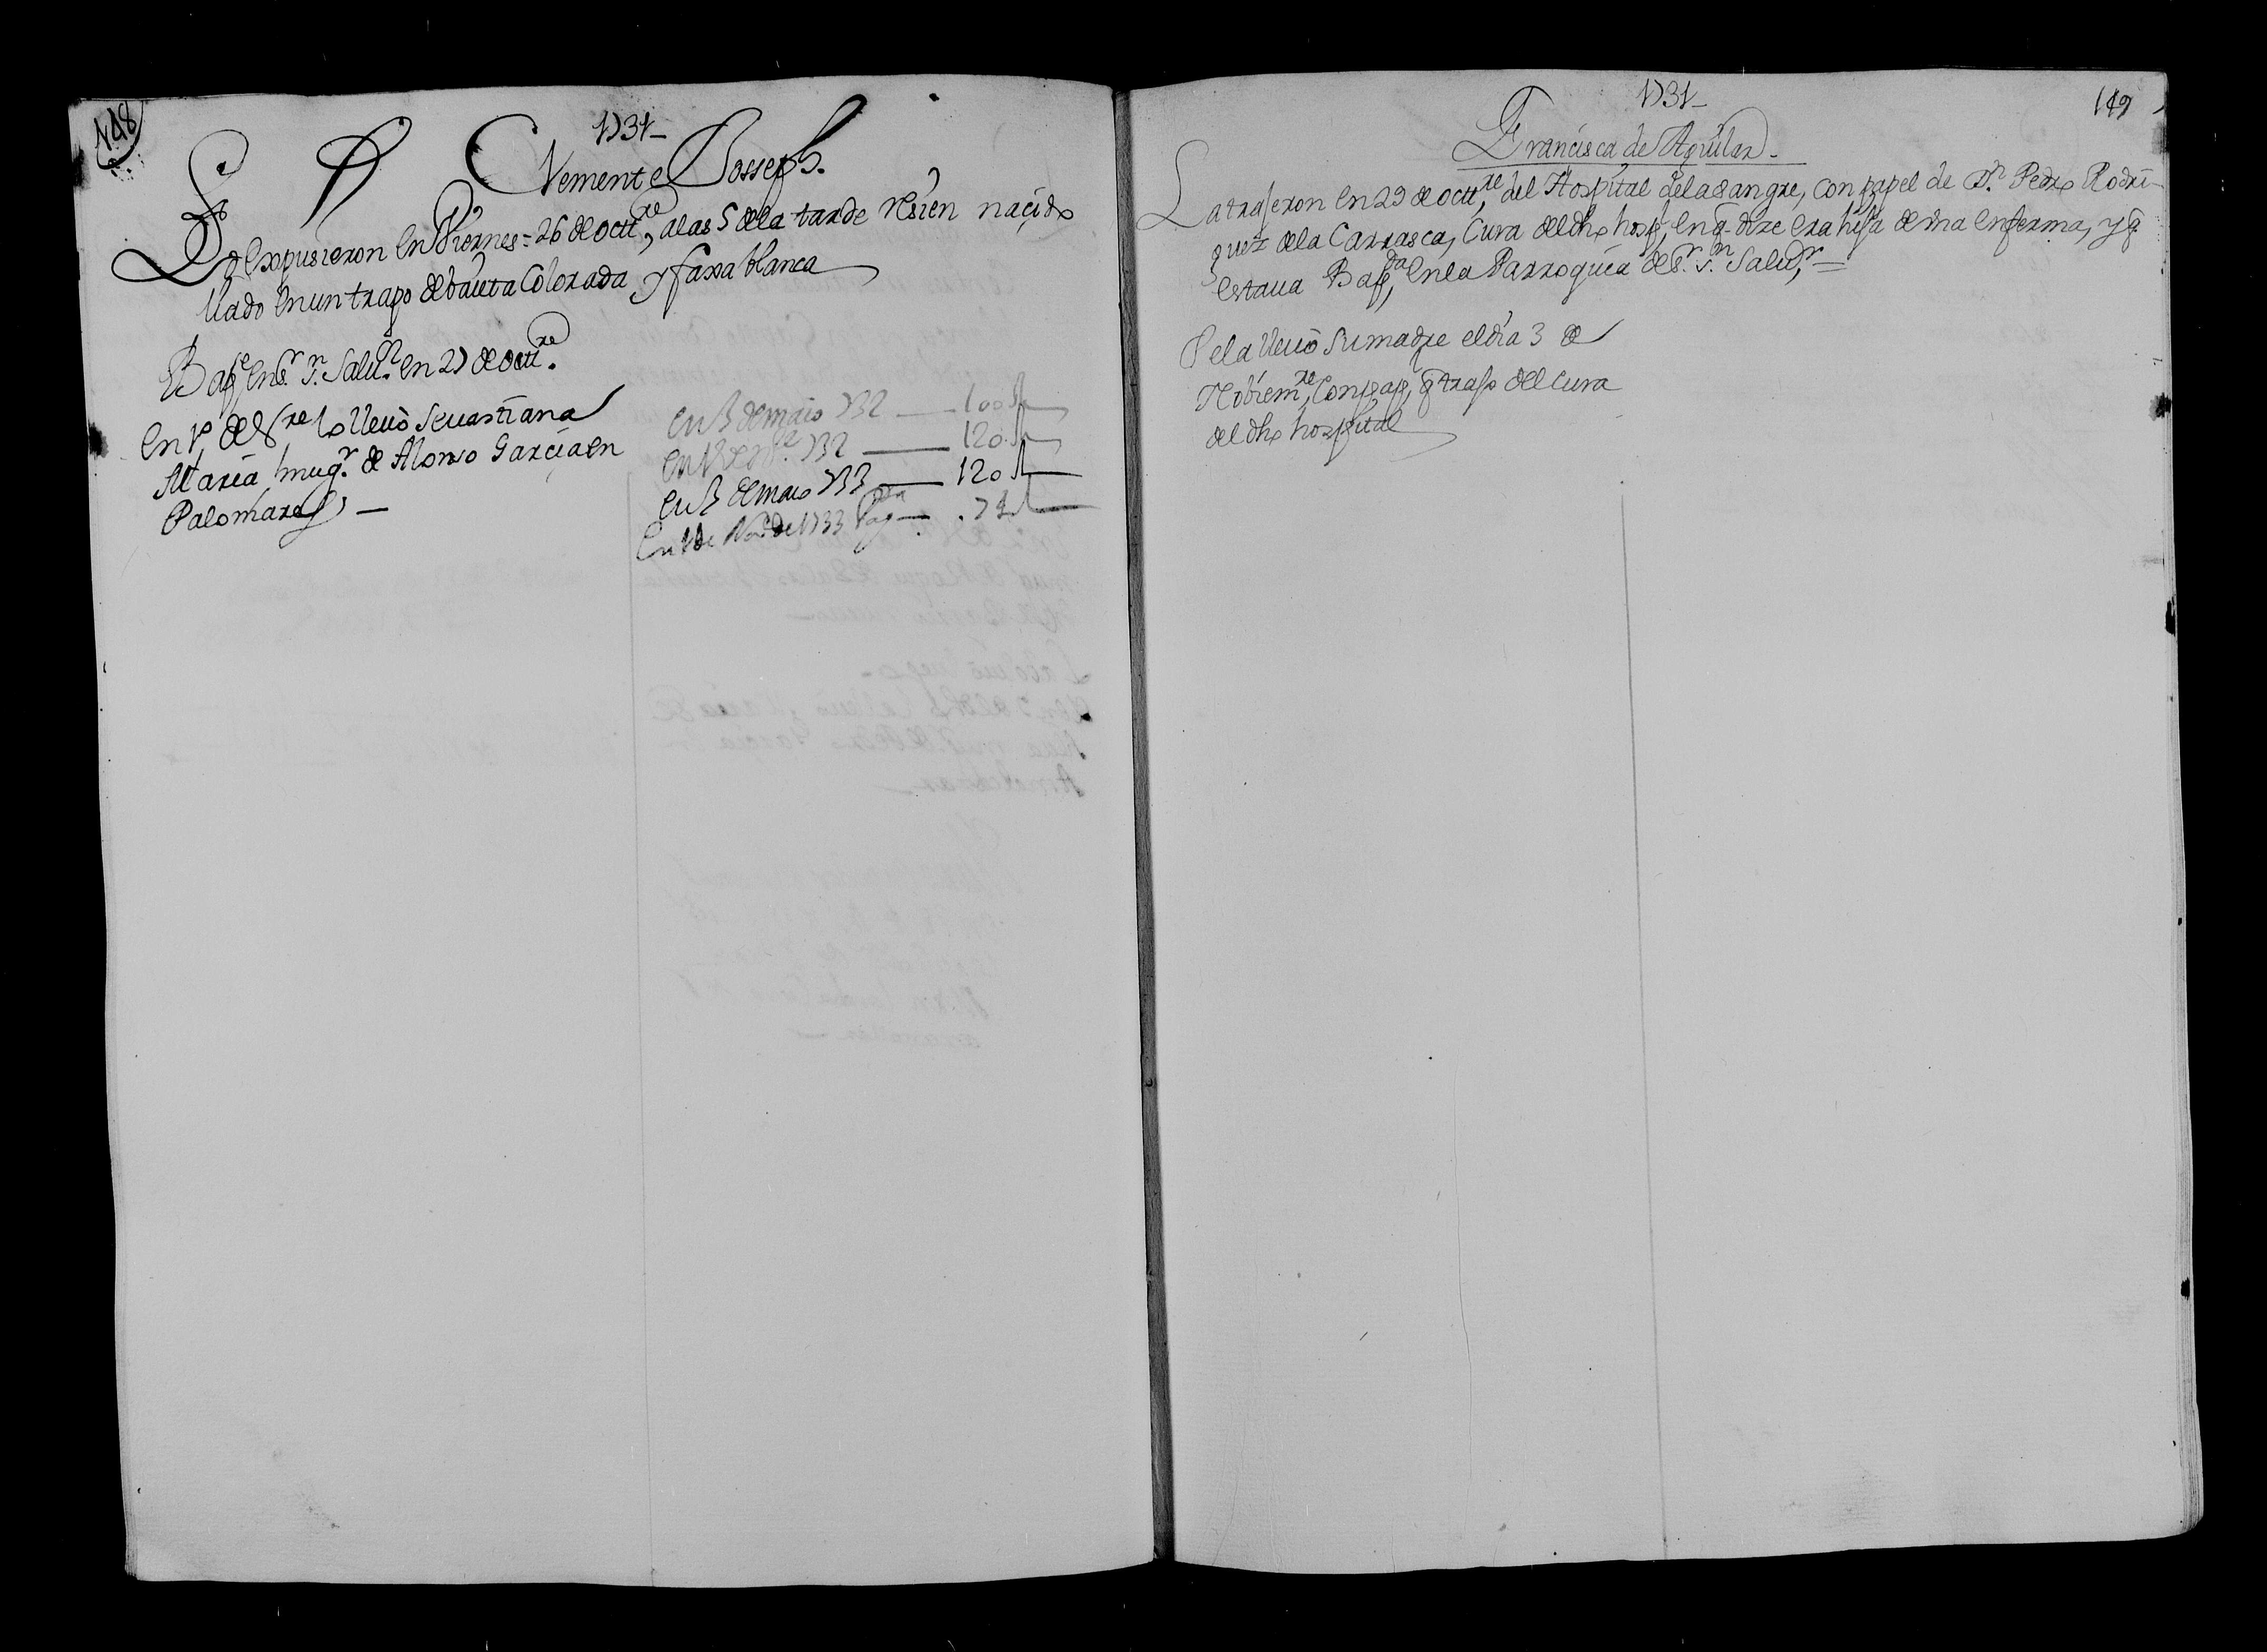 148
1731
Clemente Josseph.
Lo expusieron en Viernes = 26 de Octt.re, a las 5 de la tarde resien nacido
llado en un trapo de baieta Colorada y faxa blanca
Bap.e en S.r S.n Salu.r en 27 de Octt.re
en 1.o de xre lo lleuò Seuastiana
Maria mug.r de Alonso Garcia en
Palomares
en 3 de maio 732 — 100 R
en 1 de n.e 732 — 120 R
en 3 de maio 733 — 120 R
en 1 de No.e de 1733 Pag — 74 R
1731
149
Francisca de Aguilar
La trajeron en 29 de octt.re, del Hospital de la sangre, con papel de D.n Pedro Rodri-
guez de la Carrasca, Cura de el dho hosp.l, en q. dize era hija de vna enferma, y q
estaua Bap.da, en la Parroquia de S.r S.n Salu.r
Se la lleuò su madre el dia 3 de
Nobiem.re, con pap.l q trajo del Cura
de el dho hospital